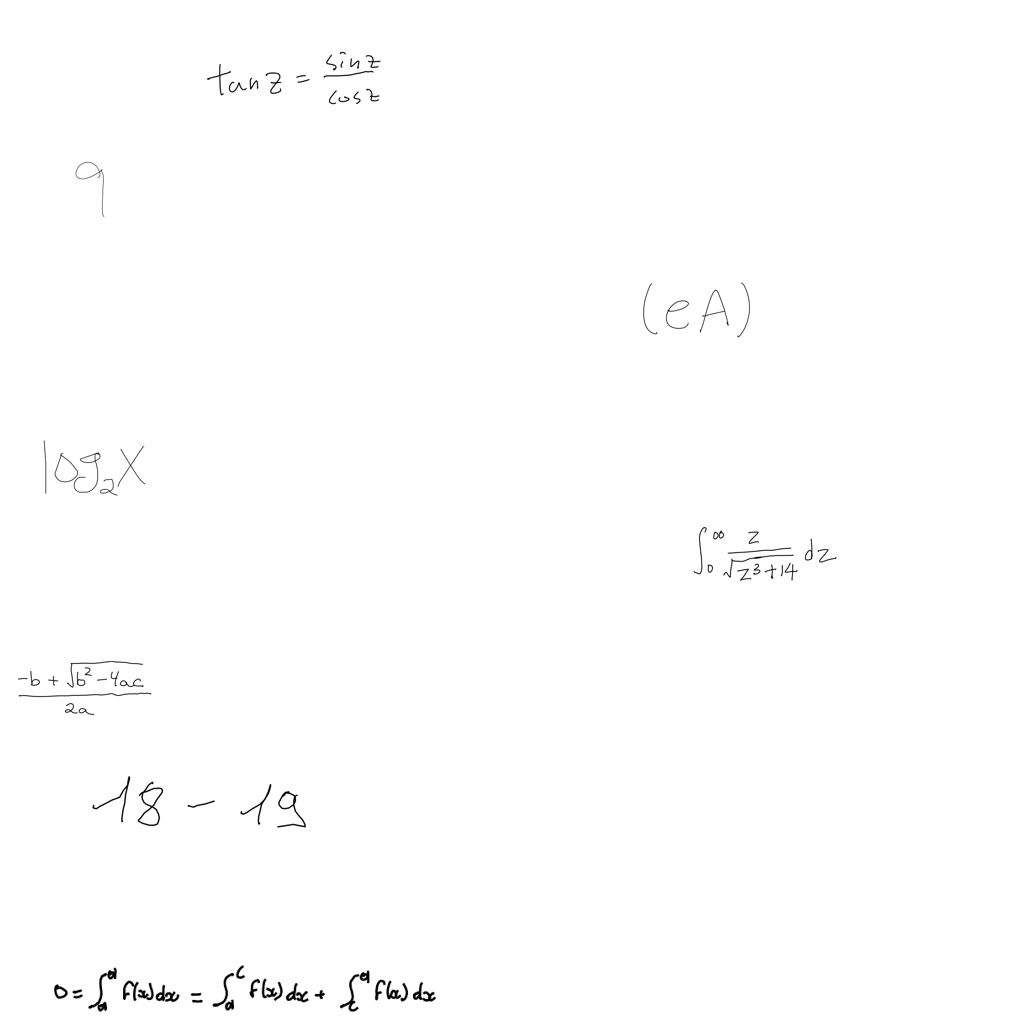 tan z = \frac{sin z}{cos z}
9
(eA)
log_2 x
\int_0^\infty \frac{z}{\sqrt{z^3+14}} dz
\frac{-b+\sqrt{b^2-4ac}}{2a}
18 - 19
0 = \int_a^a f(x)dx = \int_a^c f(x)dx + \int_c^a f(x)dx